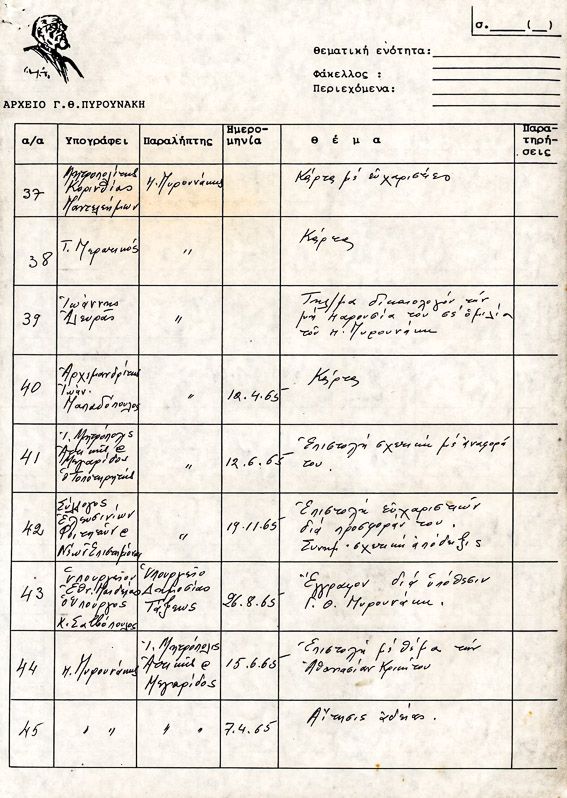 σ.____(__)
Θεματική ενότητα:
Φάκελλος :
Περιεχόμενα:
ΑΡΧΕΙΟ Γ.Θ.ΠΥΡΟΥΝΑΚΗ
α/α Υπογράφει Παραλήπτης Ημερο-μηνία Θ έ μ α Παρα-τηρή-σεις
37 Μητροπολίτης Π. Πυρουνάκης Κάρτα μέ εὐχαριστίες
Κορινθίας
Παντελεήμων
38 Γ. Μερτικός " Κάρτα
39 Ἰωάννης " Τηλ/μα δικαιολογόν τήν
μή παρουσία του σέ ὁμιλία
τοῦ π. Πυρουνάκη
40 Ἀρχιμανδρίτης " 12.4.65 Κάρτα
Ἰωάν.
Παπαδόπουλος
41 Ἱ. Μητρόπολις " 12.6.65 Ἐπιστολή σχετική μέ ἀναφορά
Ἀττικῆς & του.
Μεγαρίδος
ὁ Τοποτηρητής
42 Σύλλογος " 19.11.65 Ἐπιστολή εὐχαριστιῶν
Ἐλευσινίων διά προσφοράν του.
Φοιτητῶν & Συνημ. σχετική ἀπόδειξις
Νέων Ἐπιστημόνων
43 Ὑπουργεῖον Ὑπουργεῖο 26.8.65 Ἔγγραφον διά ὑπόθεσιν
Ἐθν. Παιδείας Δημοσίας Γ. Θ. Πυρουνάκη.
ὁ Ὑπουργός Τάξεως
44 Π. Πυρουνάκης Ἱ. Μητρόπολις 15.6.65 Ἐπιστολή μέ θέμα τήν
Ἀττικῆς &
Μεγαρίδος
45 " " " " 7.4.65 Αἴτησις ἀδείας.